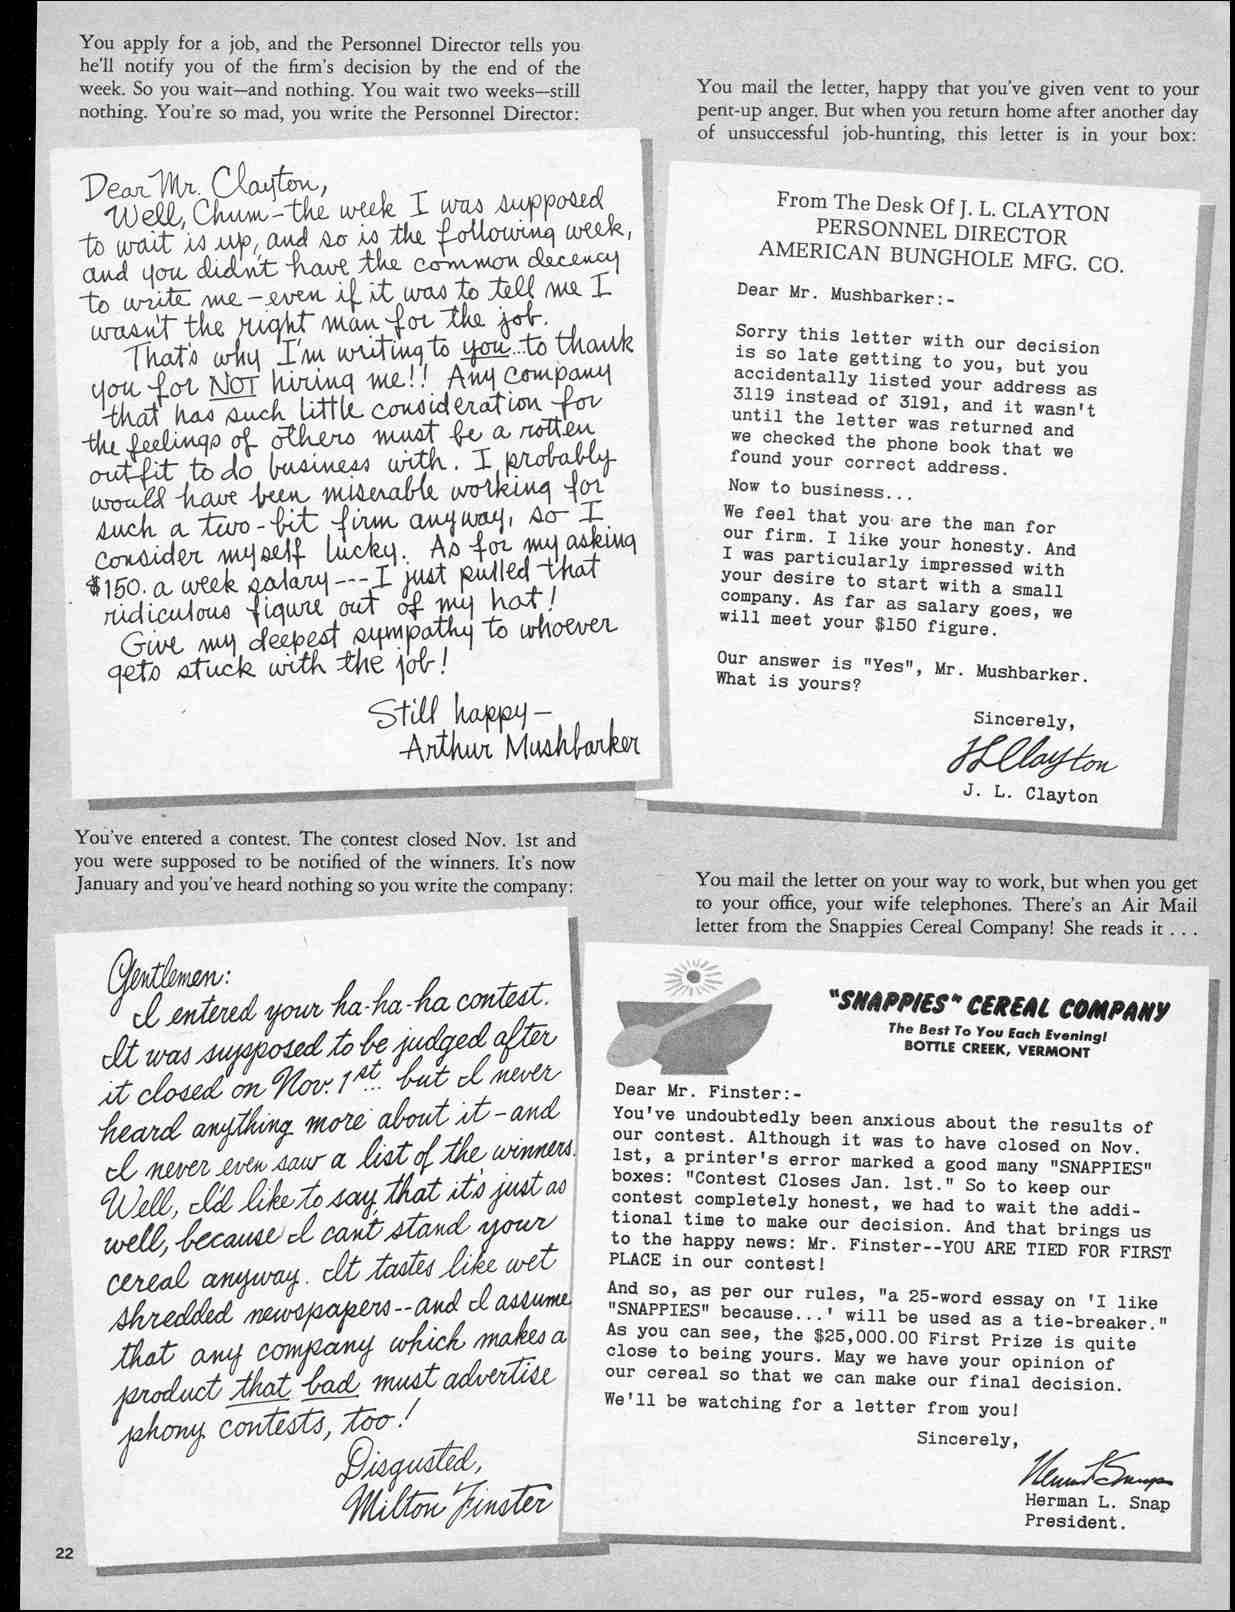 You apply for a job, and the Personnel Director tells you
he'll notify you of the firm's decision by the end of the
week. So you wait—and nothing. You wait two weeks—still
nothing. You're so mad, you write the Personnel Director:
Dear Mr. Clayton,
Well, Chum - the week I was supposed
to wait is up, and so is the following week,
and you didn't have the common decency
to write me - even if it was to tell me I
wasn't the right man for the job.
That's why I'm writing to you... to thank
you for NOT hiring me!! Any company
that has such little consideration for
the feelings of others must be a rotten
outfit to do business with. I probably
would have been miserable working for
such a two-bit firm anyway, so I
consider myself lucky. As for my asking
$150. a week salary --- I just pulled that
ridiculous figure out of my hat!
Give my deepest sympathy to whoever
gets stuck with the job!
Still happy —
Arthur Mushbarker
You mail the letter, happy that you've given vent to your
pent-up anger. But when you return home after another day
of unsuccessful job-hunting, this letter is in your box:
From The Desk Of J. L. CLAYTON
PERSONNEL DIRECTOR
AMERICAN BUNGHOLE MFG. CO.
Dear Mr. Mushbarker:-
Sorry this letter with our decision
is so late getting to you, but you
accidentally listed your address as
3119 instead of 3191, and it wasn't
until the letter was returned and
we checked the phone book that we
found your correct address.
Now to business...
We feel that you are the man for
our firm. I like your honesty. And
I was particularly impressed with
your desire to start with a small
company. As far as salary goes, we
will meet your $150 figure.
Our answer is "Yes", Mr. Mushbarker.
What is yours?
Sincerely,
J L Clayton
J. L. Clayton
You've entered a contest. The contest closed Nov. 1st and
you were supposed to be notified of the winners. It's now
January and you've heard nothing so you write the company:
Gentlemen:
I entered your ha-ha-ha contest.
It was supposed to be judged after
it closed on Nov. 1st... but I never
heard anything more about it - and
I never even saw a list of the winners.
Well, I'd like to say that it's just as
well, because I can't stand your
cereal anyway. It tastes like wet
shredded newspapers -- and I assume
that any company which makes a
product that bad must advertise
phony contests, too!
Disgusted,
Milton Finster
You mail the letter on your way to work, but when you get
to your office, your wife telephones. There's an Air Mail
letter from the Snappies Cereal Company! She reads it . . .
"SNAPPIES" CEREAL COMPANY
The Best To You Each Evening!
BOTTLE CREEK, VERMONT
Dear Mr. Finster:-
You've undoubtedly been anxious about the results of
our contest. Although it was to have closed on Nov.
1st, a printer's error marked a good many "SNAPPIES"
boxes: "Contest Closes Jan. 1st." So to keep our
contest completely honest, we had to wait the addi-
tional time to make our decision. And that brings us
to the happy news: Mr. Finster--YOU ARE TIED FOR FIRST
PLACE in our contest!
And so, as per our rules, "a 25-word essay on 'I like
"SNAPPIES" because...' will be used as a tie-breaker."
As you can see, the $25,000.00 First Prize is quite
close to being yours. May we have your opinion of
our cereal so that we can make our final decision.
We'll be watching for a letter from you!
Sincerely,
Herman L. Snap
President.
22